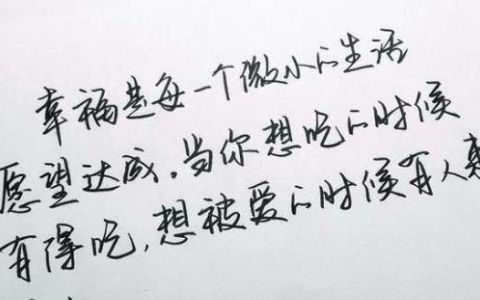 幸福是每一个微小的生活
愿望达成。当你想吃的时候
有得吃，想被爱的时候有人